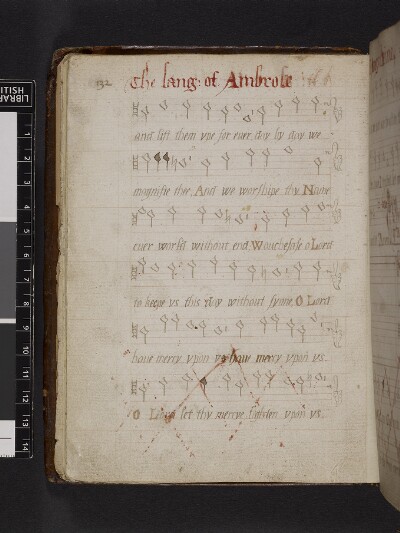 132 The song: of Ambrose
and lift them vpe for euer day by day we
magnifie thee, And we worshipe thy Name
euer world without end, Vouchesafe o Lord
to keepe vs this day without synne, O Lord
haue mercy vpon vs haue mercy vpon vs.
O Lord let thy mercye lighten vpon vs.
LIBRARY
1
2
3
4
5
6
7
8
9
10
11
12
13
14